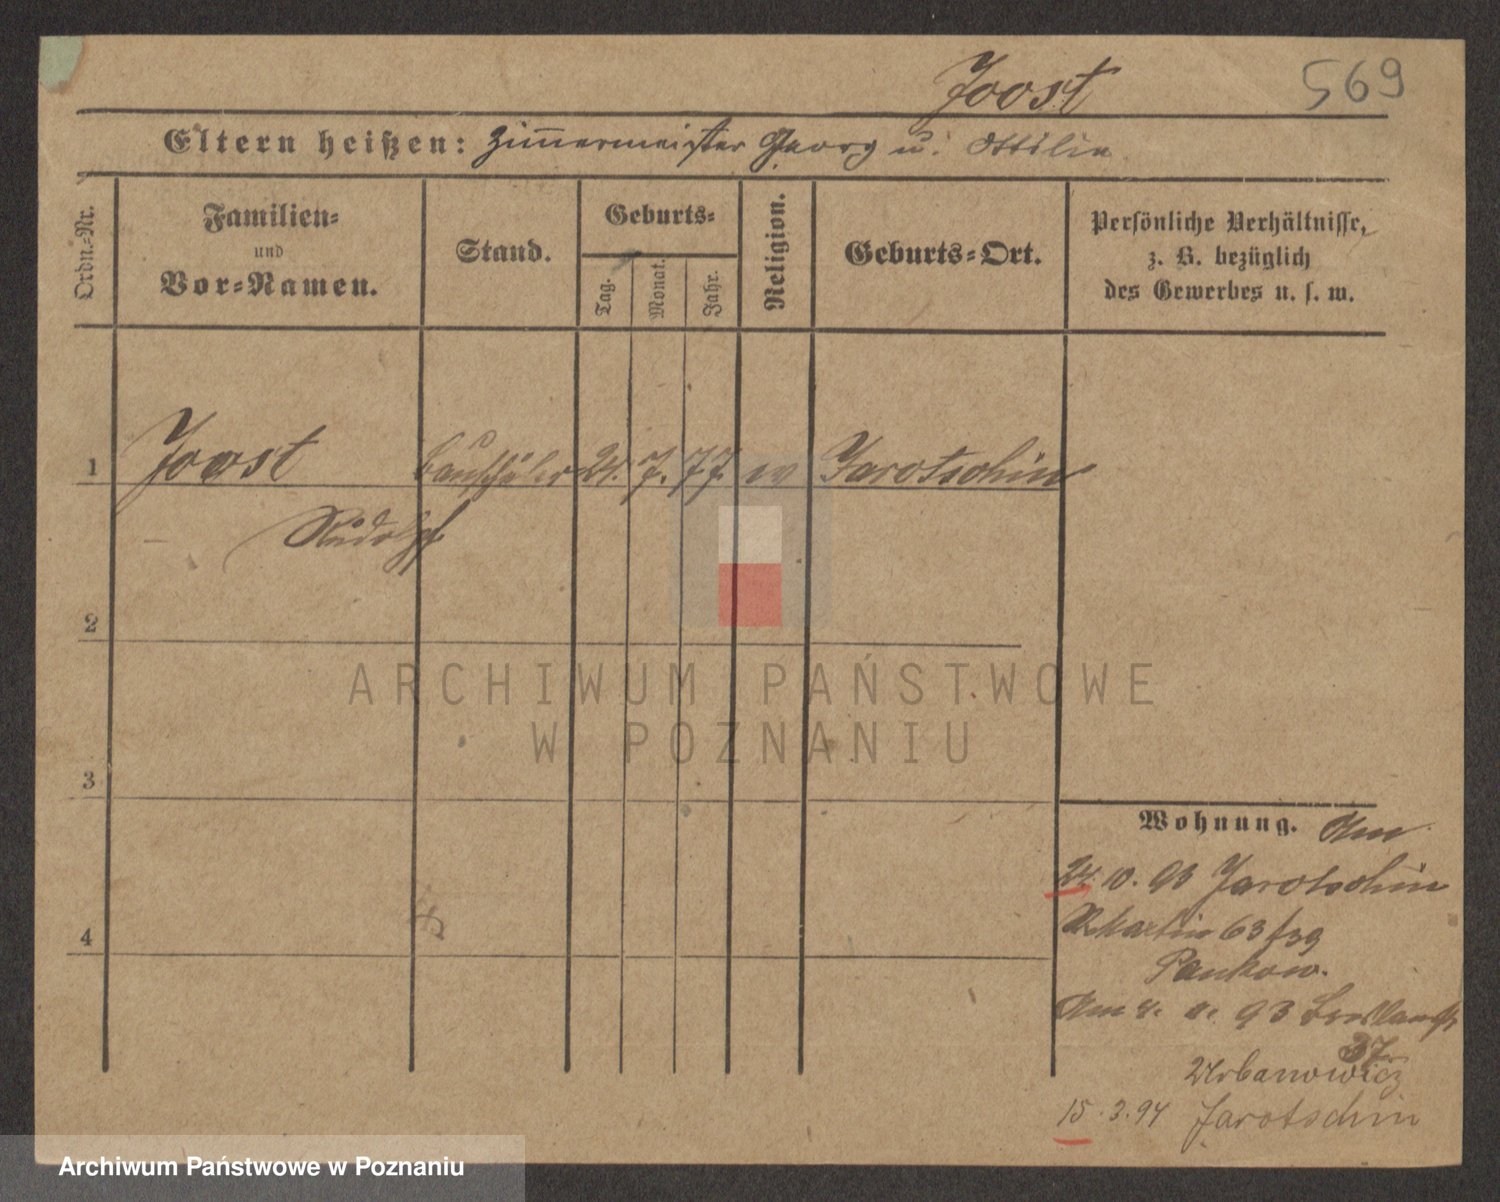 Joost 569
Eltern heißen: Zimmermeister Georg u. Ottilie
Ordn.=Nr.
Familien=
und
Vor=Namen.
Stand.
Geburts=
Tag.
Monat.
Jahr.
Religion.
Geburts=Ort.
Persönliche Verhältnisse,
z. B. bezüglich
des Gewerbes u. s. w.
1 Joost Bauschüler 24. 7. 77 ev Jarotschin
Rudolph
2
3
4
Wohnung. Am
24. 10. 93 Jarotschin
St Martin 63
Pankow.
Am 4. 93
37
Urbanowicz
15. 3. 94 Jarotschin
ARCHIWUM PAŃSTWOWE
W POZNANIU
Archiwum Państwowe w Poznaniu